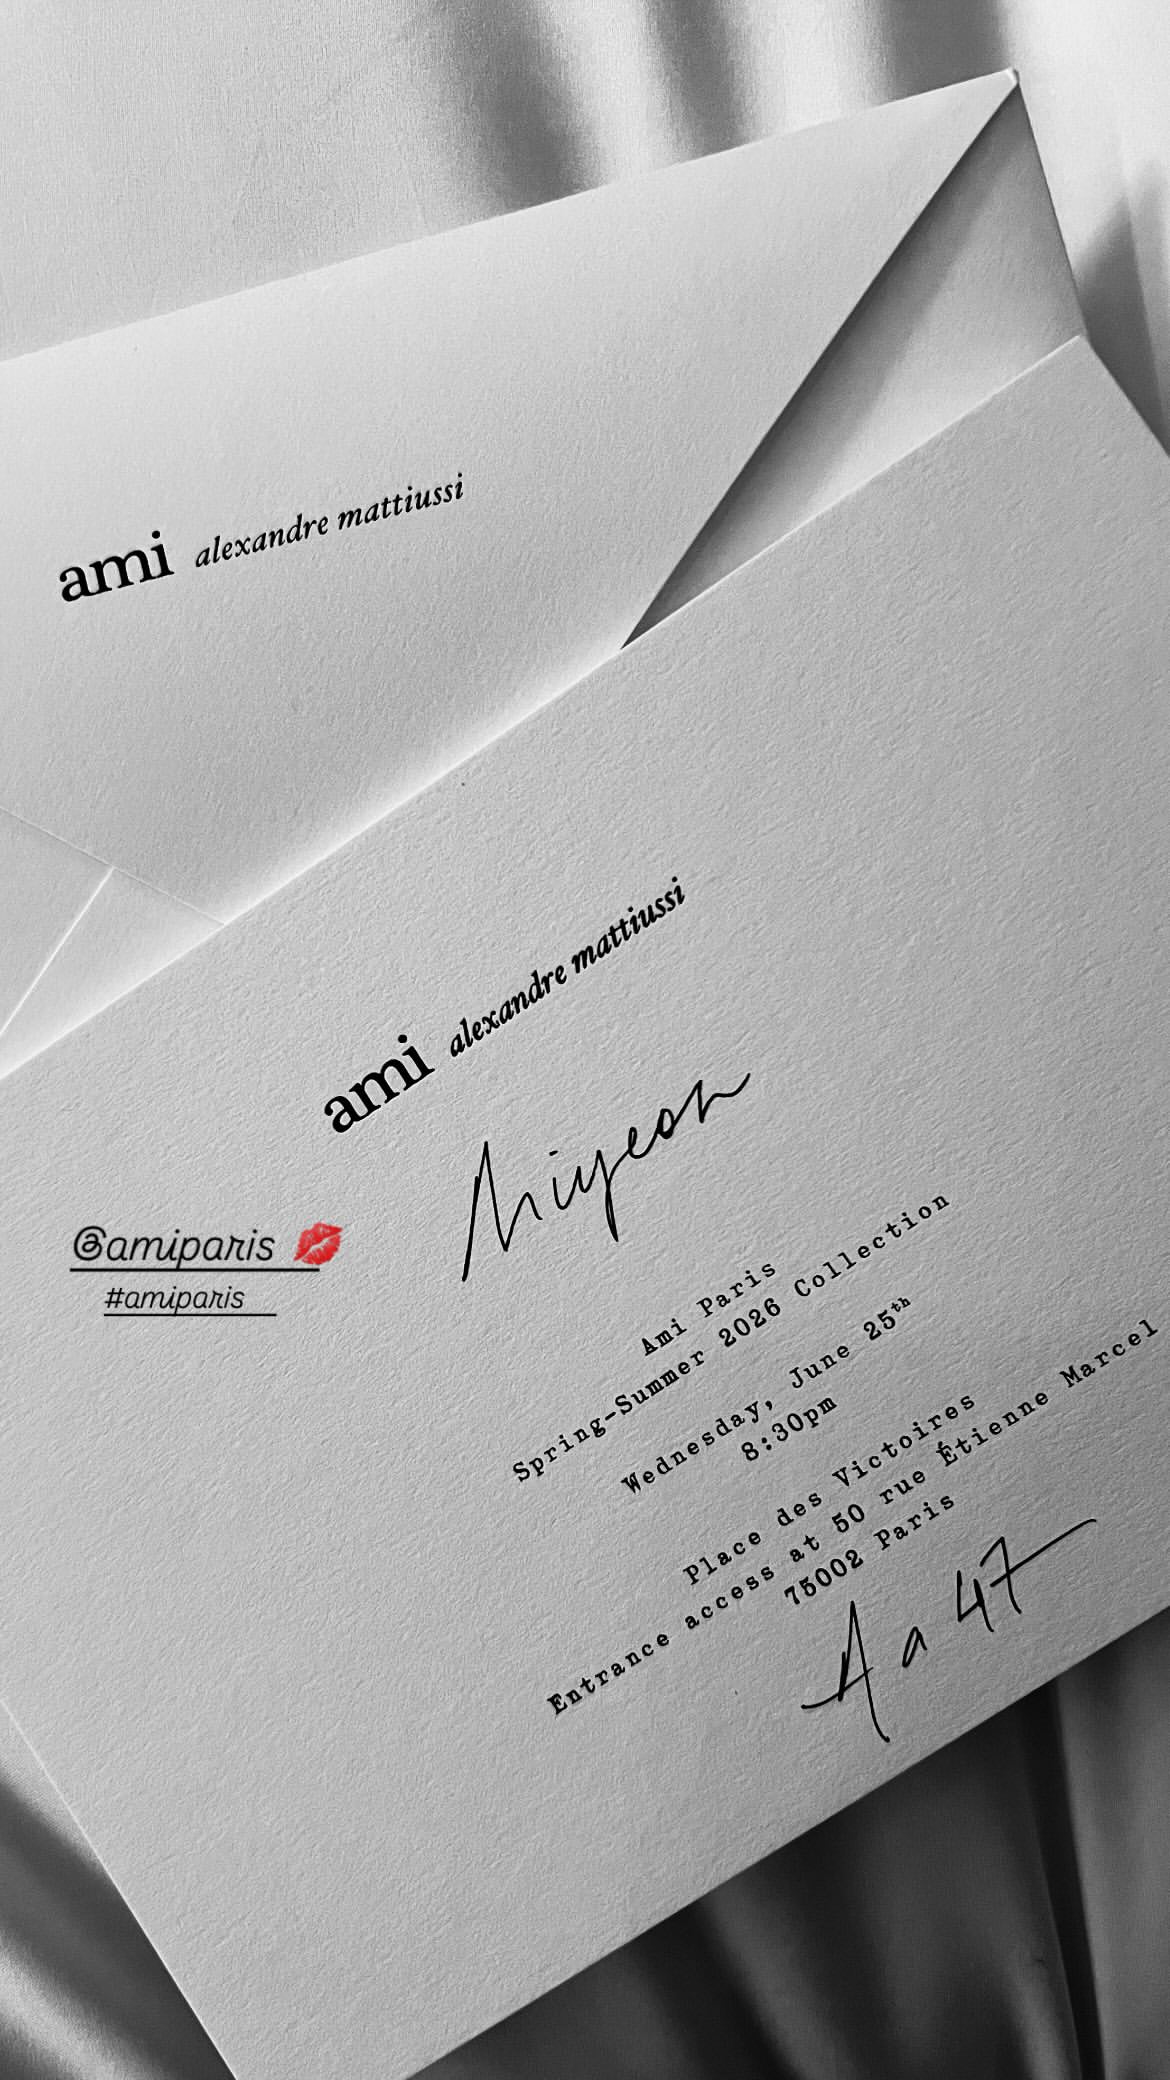 ami alexandre mattiussi
ami alexandre mattiussi
Miyeon
@amiparis 💋
#amiparis
Ami Paris
Spring-Summer 2026 Collection
Wednesday, June 25th
8:30pm
Place des Victoires
Entrance access at 50 rue Étienne Marcel
75002 Paris
A a 47